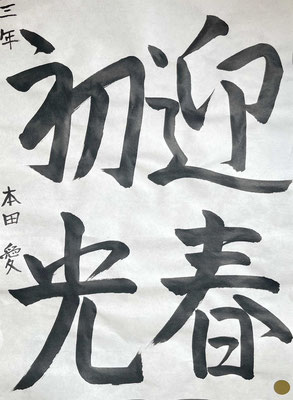 迎春
初光
三年 本田 愛